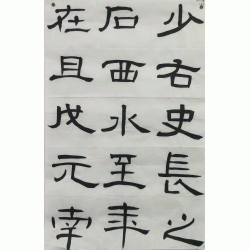 少右史長之
后西水至年
在且戊元